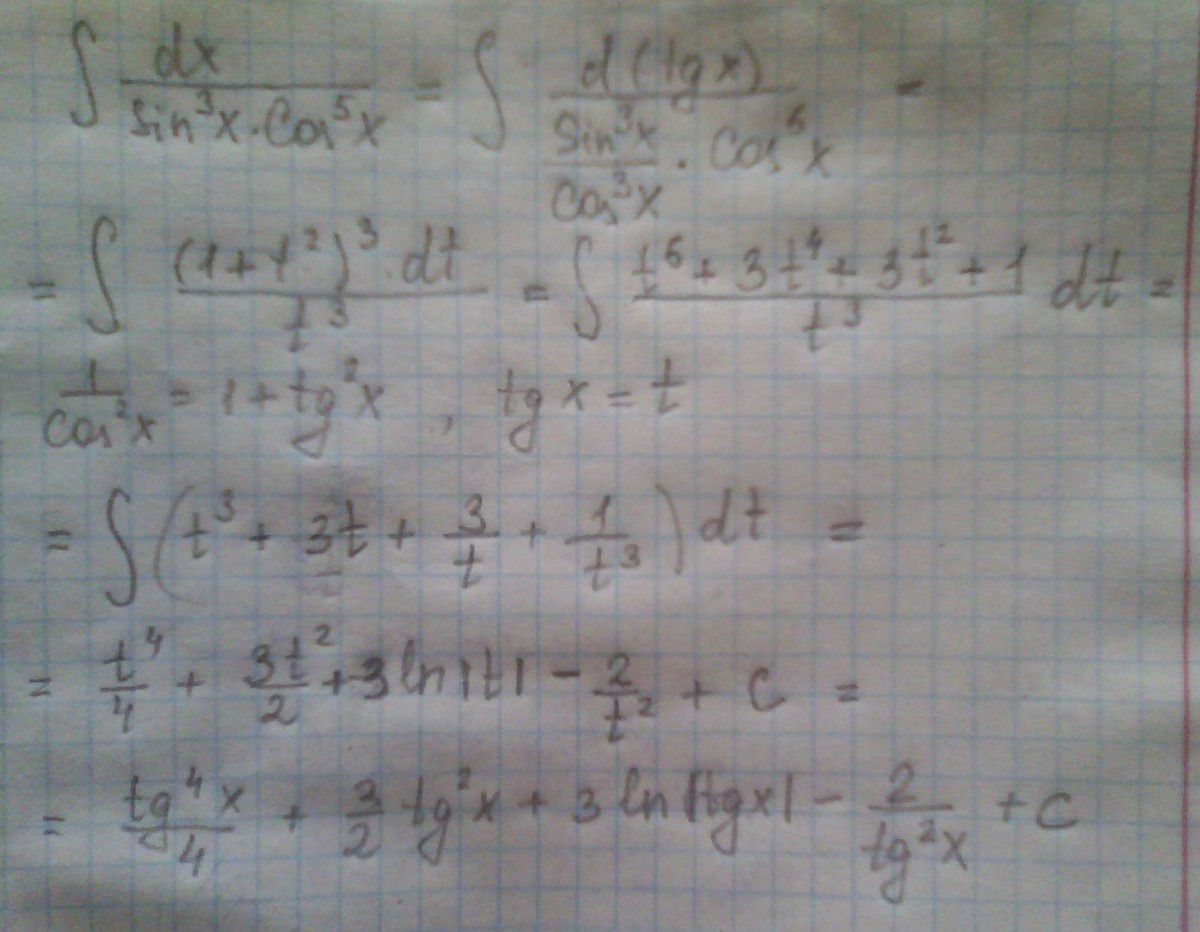 ∫ dx / (sin³x · cos⁵x) = ∫ d(tg x) / ((sin³x / cos³x) · cos⁶x) =
= ∫ (1+t²)³ · dt / t³ = ∫ (t⁶ + 3t⁴ + 3t² + 1) / t³ dt =
1 / cos²x = 1 + tg²x , tg x = t
= ∫ (t³ + 3t + 3/t + 1/t³) dt =
= t⁴/4 + 3t²/2 + 3 ln|t| − 2/t² + C =
= tg⁴x / 4 + 3/2 tg²x + 3 ln|tgx| − 2 / tg²x + C